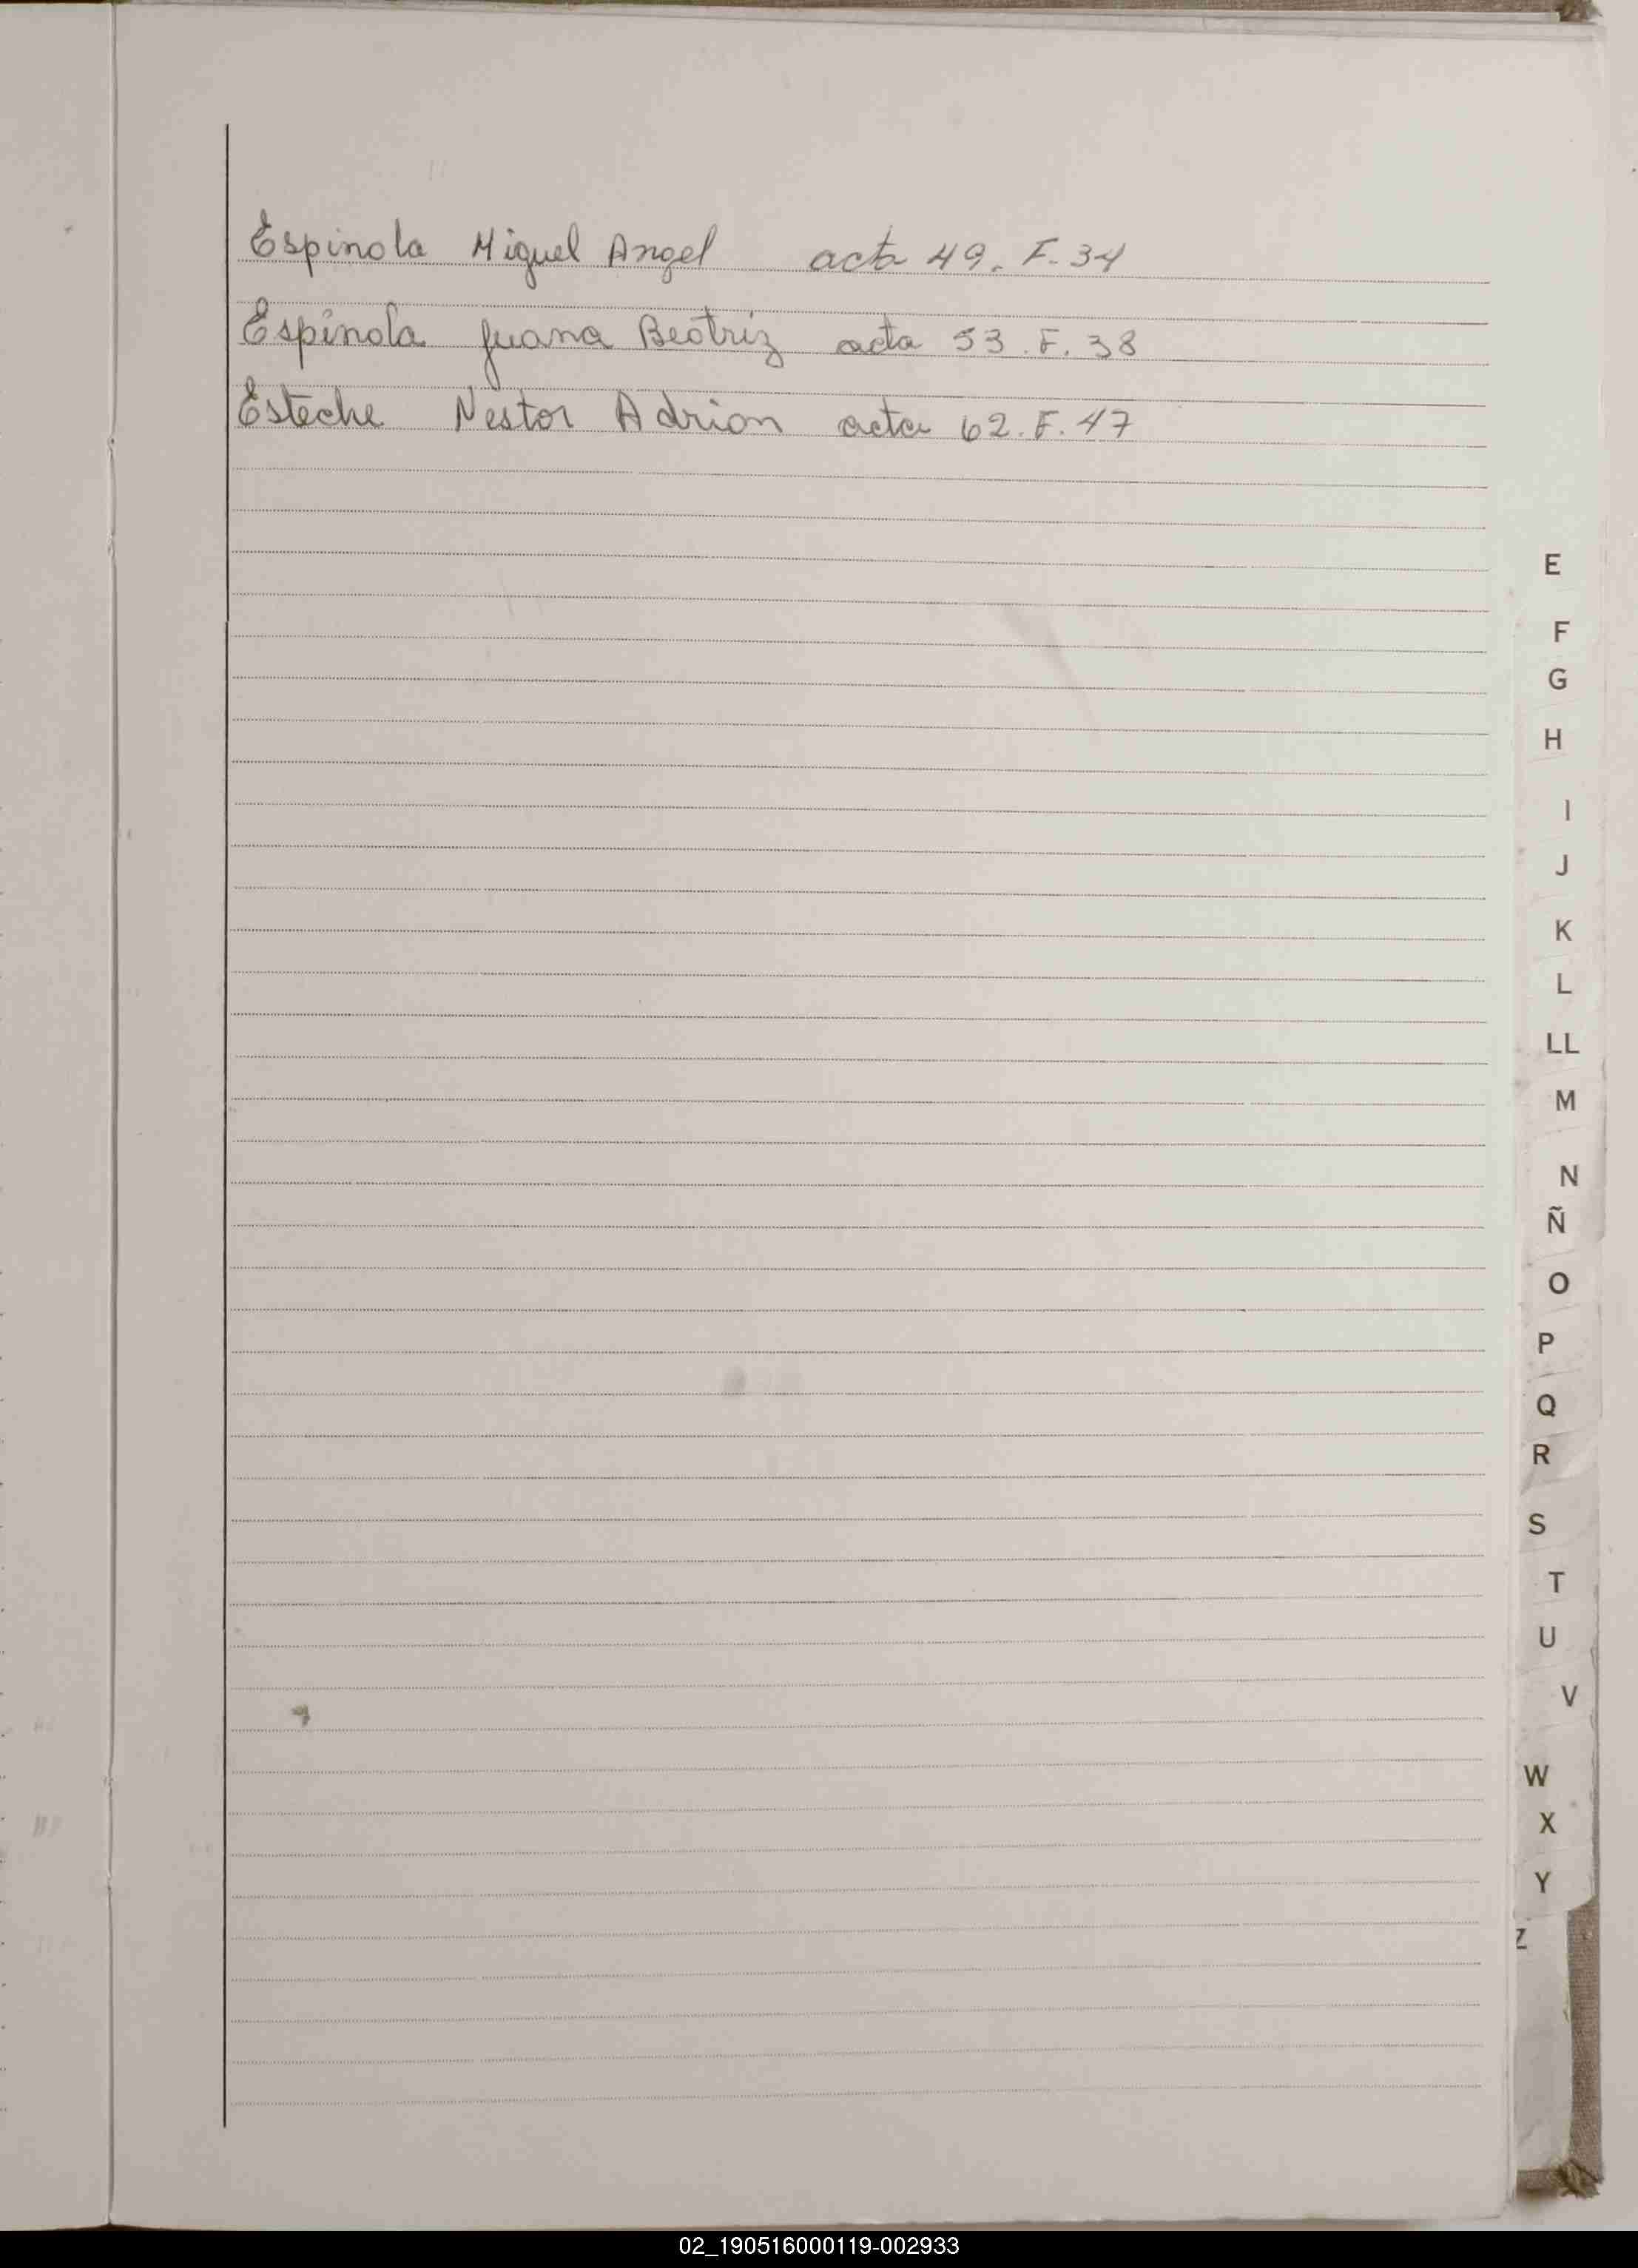 Espinola Miguel Angel acta 49. F. 34
Espinola Juana Beatriz acta 53. F. 38
Esteche Nestor Adrian acta 62. F. 47
E
F
G
H
I
J
K
L
LL
M
N
Ñ
O
P
Q
R
S
T
U
V
W
X
Y
Z
02_190516000119-002933